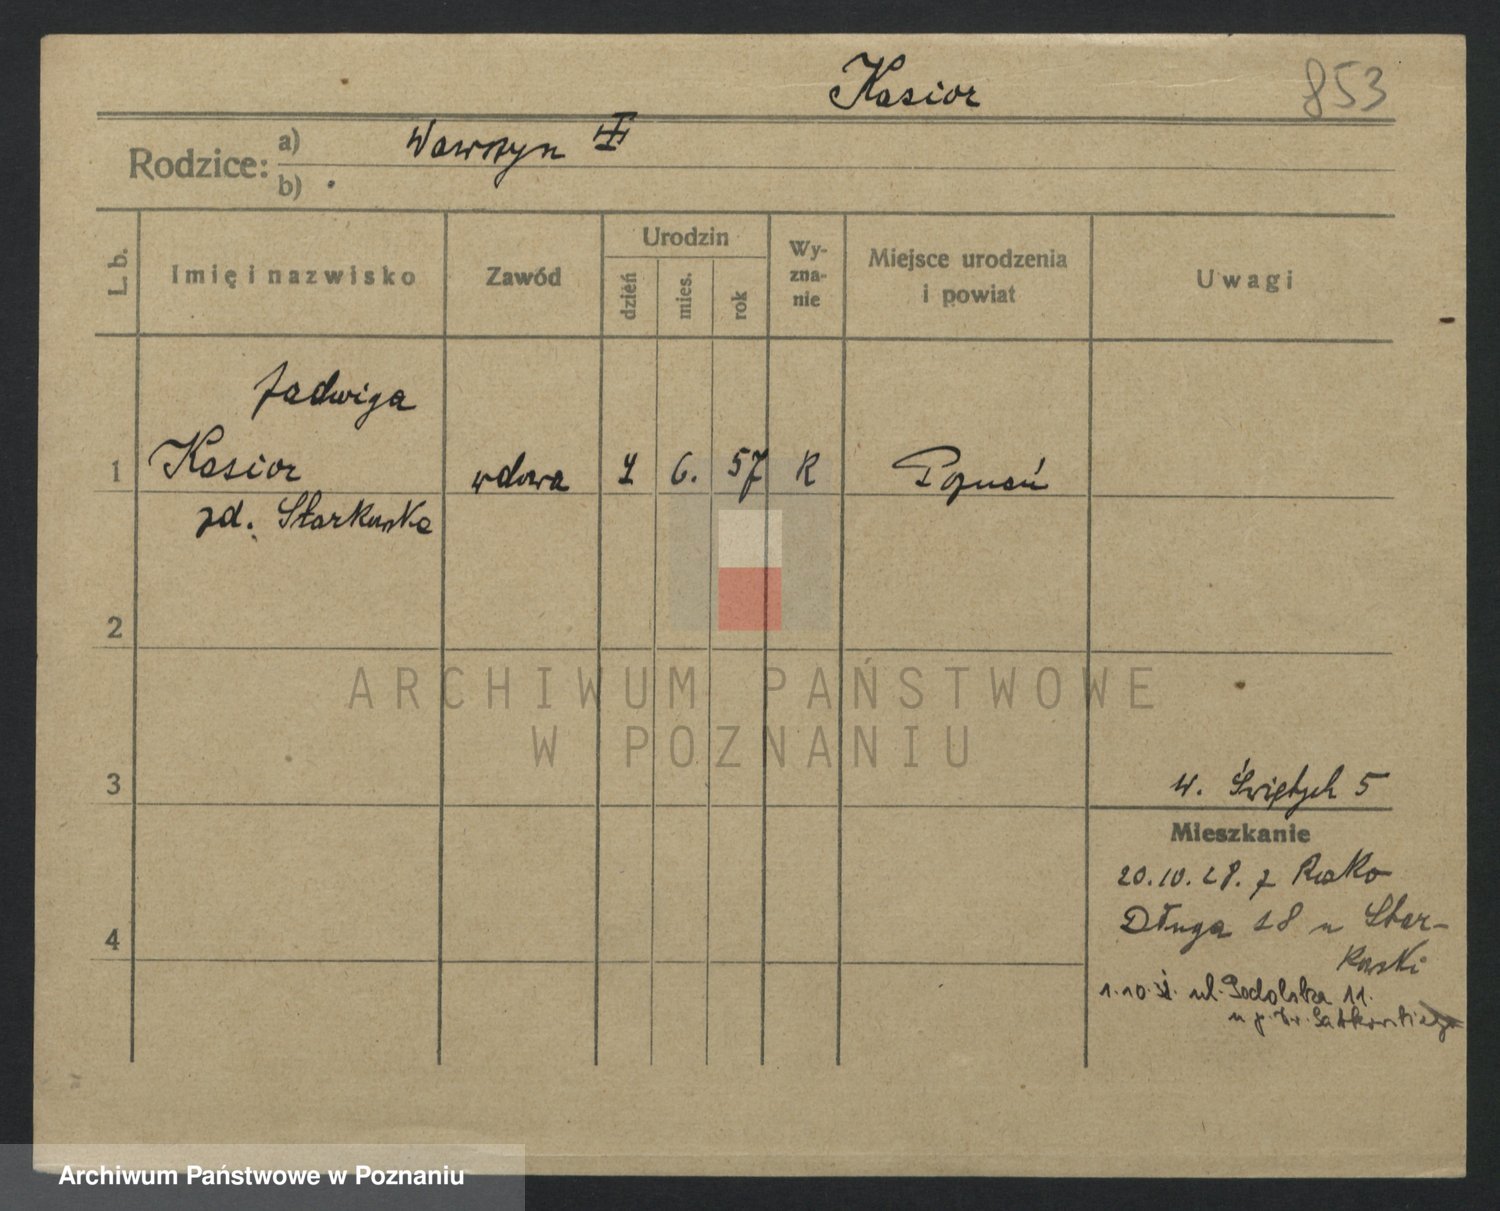 Kasior 853
Rodzice: a) Wawrzyn
b)
L. b. Imię i nazwisko Zawód Urodzin dzień mies. rok Wy-zna-nie Miejsce urodzenia i powiat Uwagi
Jadwiga
1 Kasior wdowa 1 6. 57 R Poznań
zd. Starkowska
2
ARCHIWUM PAŃSTWOWE
W POZNANIU
3 W. Świętych 5
Mieszkanie
20.10.28. z
4 Długa 18 u Star-
kowski
1.10. ul. Podolska 11.
Archiwum Państwowe w Poznaniu